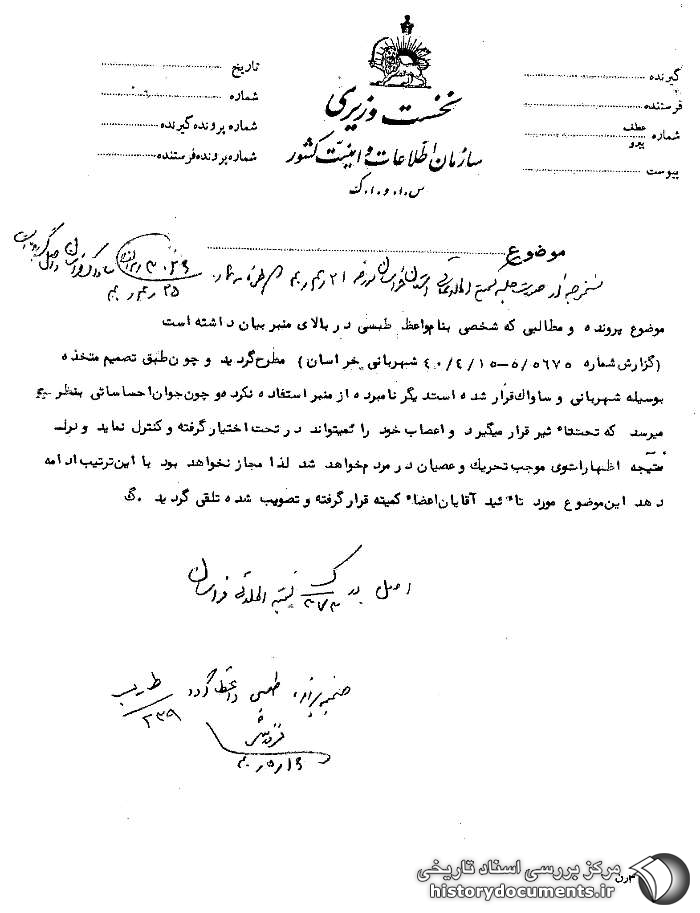 گیرنده
فرستنده
شماره عطف
پیرو
پیوست
نخست وزیری
سازمان اطلاعات و امنیت کشور
س.ا.و.ا.ک
تاریخ
شماره
شماره پرونده گیرنده
شماره پرونده فرستنده
موضوع
موضوع پرونده و مطالبی که شخصی بنام واعظ طبسی در بالای منبر بیان داشته است
(گزارش شماره ۵/۵۶۷۵-۴۰/۴/۱۵ شهربانی خراسان) مطرح گردید و چون طبق تصمیم متخذه
بوسیله شهربانی و ساواك قرار شده است دیگر نامبرده از منبر استفاده نکرده و چون جوان احساساتی بنظر
میرسد که تحت تاءثیر قرار میگیرد و اعصاب خود را نمیتواند در تحت اختیار گرفته و کنترل نماید و
نتیجه اظهارات وی موجب تحریك و عصیان در مردم خواهد شد لذا مجاز نخواهد بود با این ترتیب ادامه
دهد این موضوع مورد تاءئید آقایان اعضاء کمیته قرار گرفته و تصویب شده تلقی گردید .گ
اصل در ک
ضمیمه پرونده طبسی واعظ گردد
۱۵ر۵ر۴۰
مرکز بررسی اسناد تاریخی
historydocuments.ir